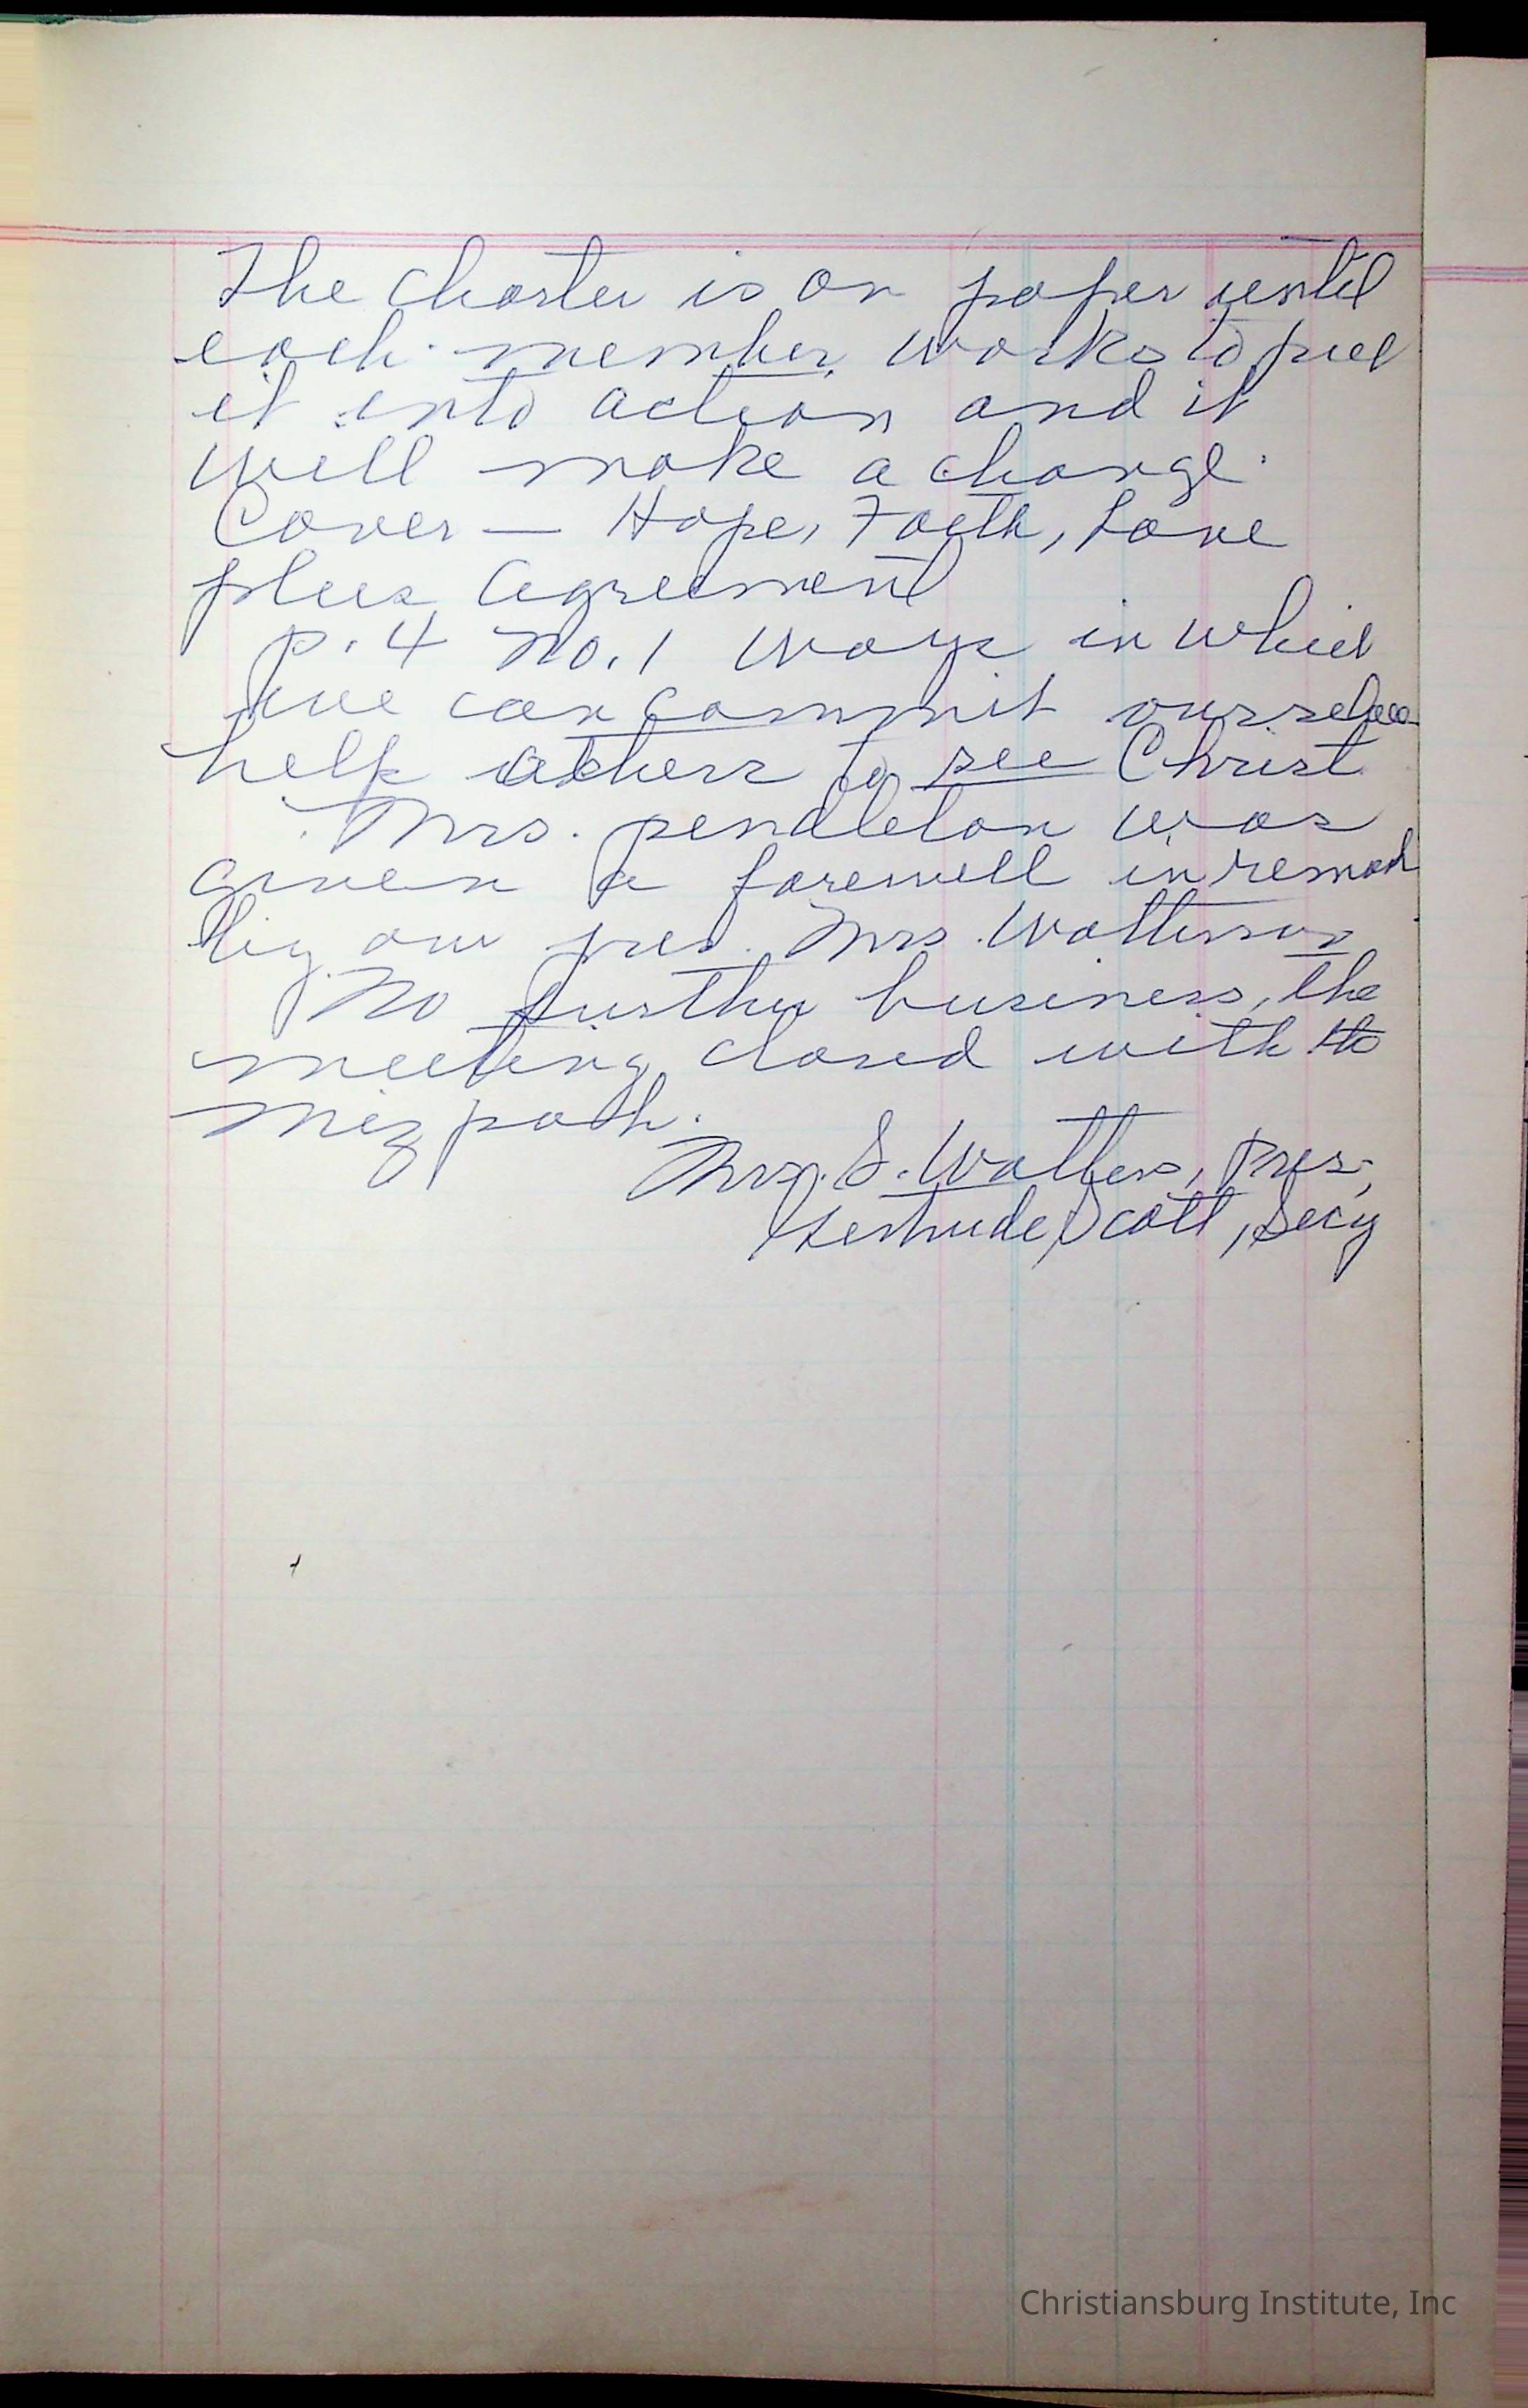 The Charter is on paper until
each member works to put
it into action and it
will make a change.
Cover — Hope, Faith, Love
plus Agreement
p. 4 No. 1 Ways in which
we can commit ourselves
help others to see Christ
Mrs. pendleton was
given a farewell in
our pres. Mrs.
No further business, the
meeting closed with the
mizpah.
Mrs. S. Walters, Pres,
Gertrude Scott, Secy
Christiansburg Institute, Inc